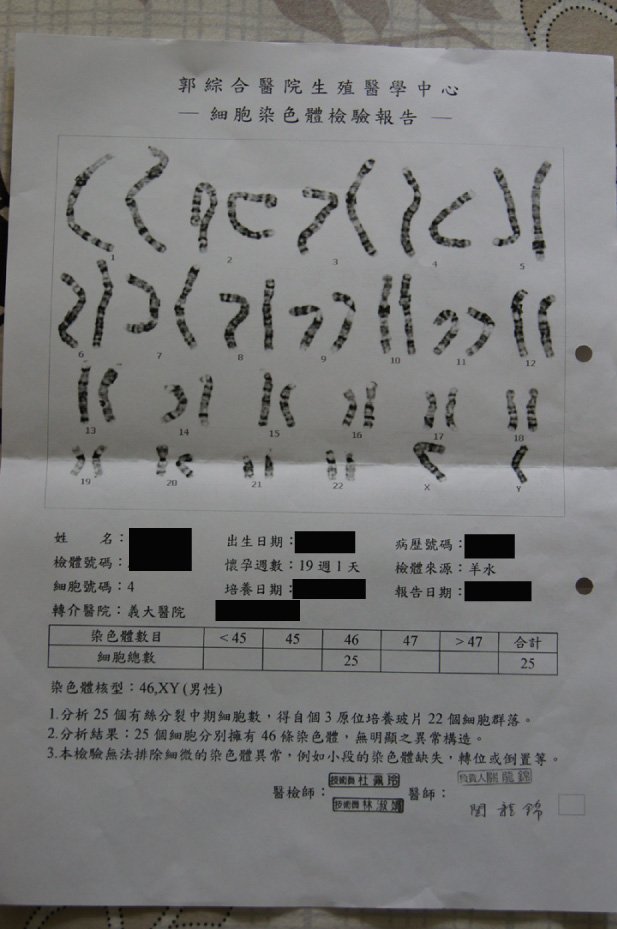 郭綜合醫院生殖醫學中心
— 細胞染色體檢驗報告 —
1 2 3 4 5
6 7 8 9 10 11 12
13 14 15 16 17 18
19 20 21 22 X Y
姓 名： 出生日期： 病歷號碼：
檢體號碼： 懷孕週數：19 週 1 天 檢體來源：羊水
細胞號碼：4 培養日期： 報告日期：
轉介醫院：義大醫院
染色體數目 < 45 45 46 47 > 47 合計
細胞總數 25 25
染色體核型：46,XY (男性)
1.分析 25 個有絲分裂中期細胞數，得自個 3 原位培養玻片 22 個細胞群落。
2.分析結果：25 個細胞分別擁有 46 條染色體，無明顯之異常構造。
3.本檢驗無法排除細微的染色體異常，例如小段的染色體缺失，轉位或倒置等。
醫檢師： 技術員 杜佩玲 醫師： 負責人 關龍錦
技術員 林淑娟 關龍錦